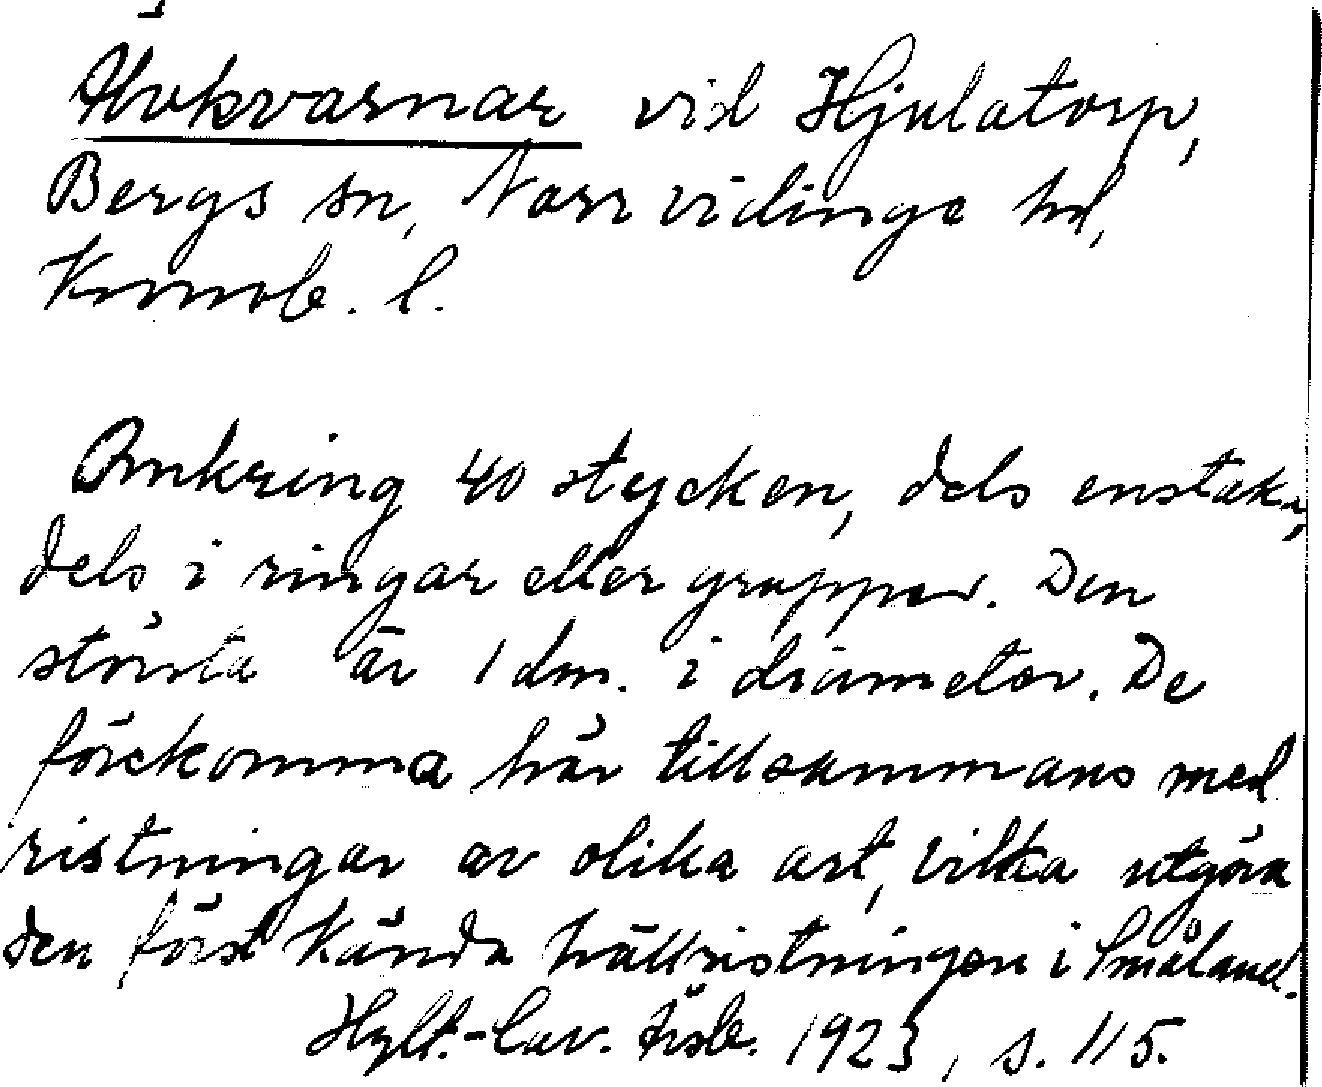 Älvkvarnar vid Hjulatorp,
Bergs sn, Norrvidinge hd,
Kronob. l.
Omkring 40 stycken, dels enstaka,
dels i ringar eller grupper. Den
största är 1 dm. i diameter. De
förekomma här tillsammans med
ristningar av olika art, vilka utgöra
den först kända hällristningen i Småland.
Hylt.-Cav. årsb. 1923, s. 115.